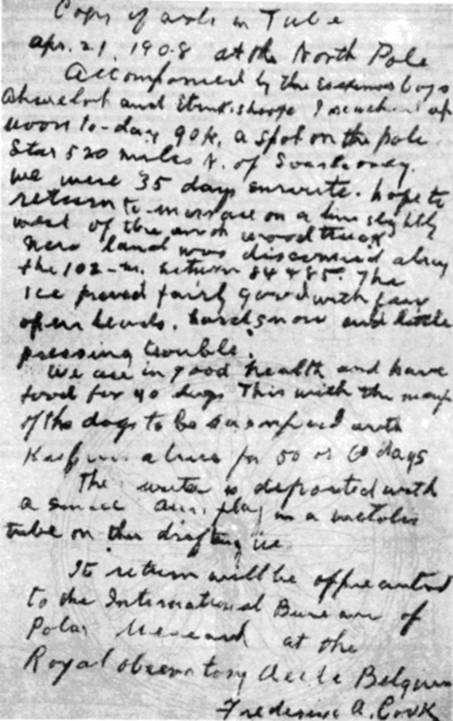 Copy of note in Tube
Apr. 21, 1908 at the North Pole
Accompanied by the Eskimo boys
Ahwelah and Etukishook I reached at
noon to-day 90 N. a spot on the polar
star 520 miles N. of Svartevoeg.
We were 35 days enroute. hope to
return to-morrow on a line slightly
west of the north ward track
New land was discovered along
the 102 - m. between 84 & 85. The
Ice proved fairly good with few
open leads, hard snow and little
pressing trouble.
We are in good health and have
food for 40 days This with the meat
of the dogs to be sacrificed will
Keep us alive for 50 or 60 days
The is deposited with
a small Am. flag in a metallic
tube on the drifting ice.
Its return will be appreciated
to the International Bureau of
Polar Research at the
Royal observatory Uccle Belgium
Frederick A. Cook